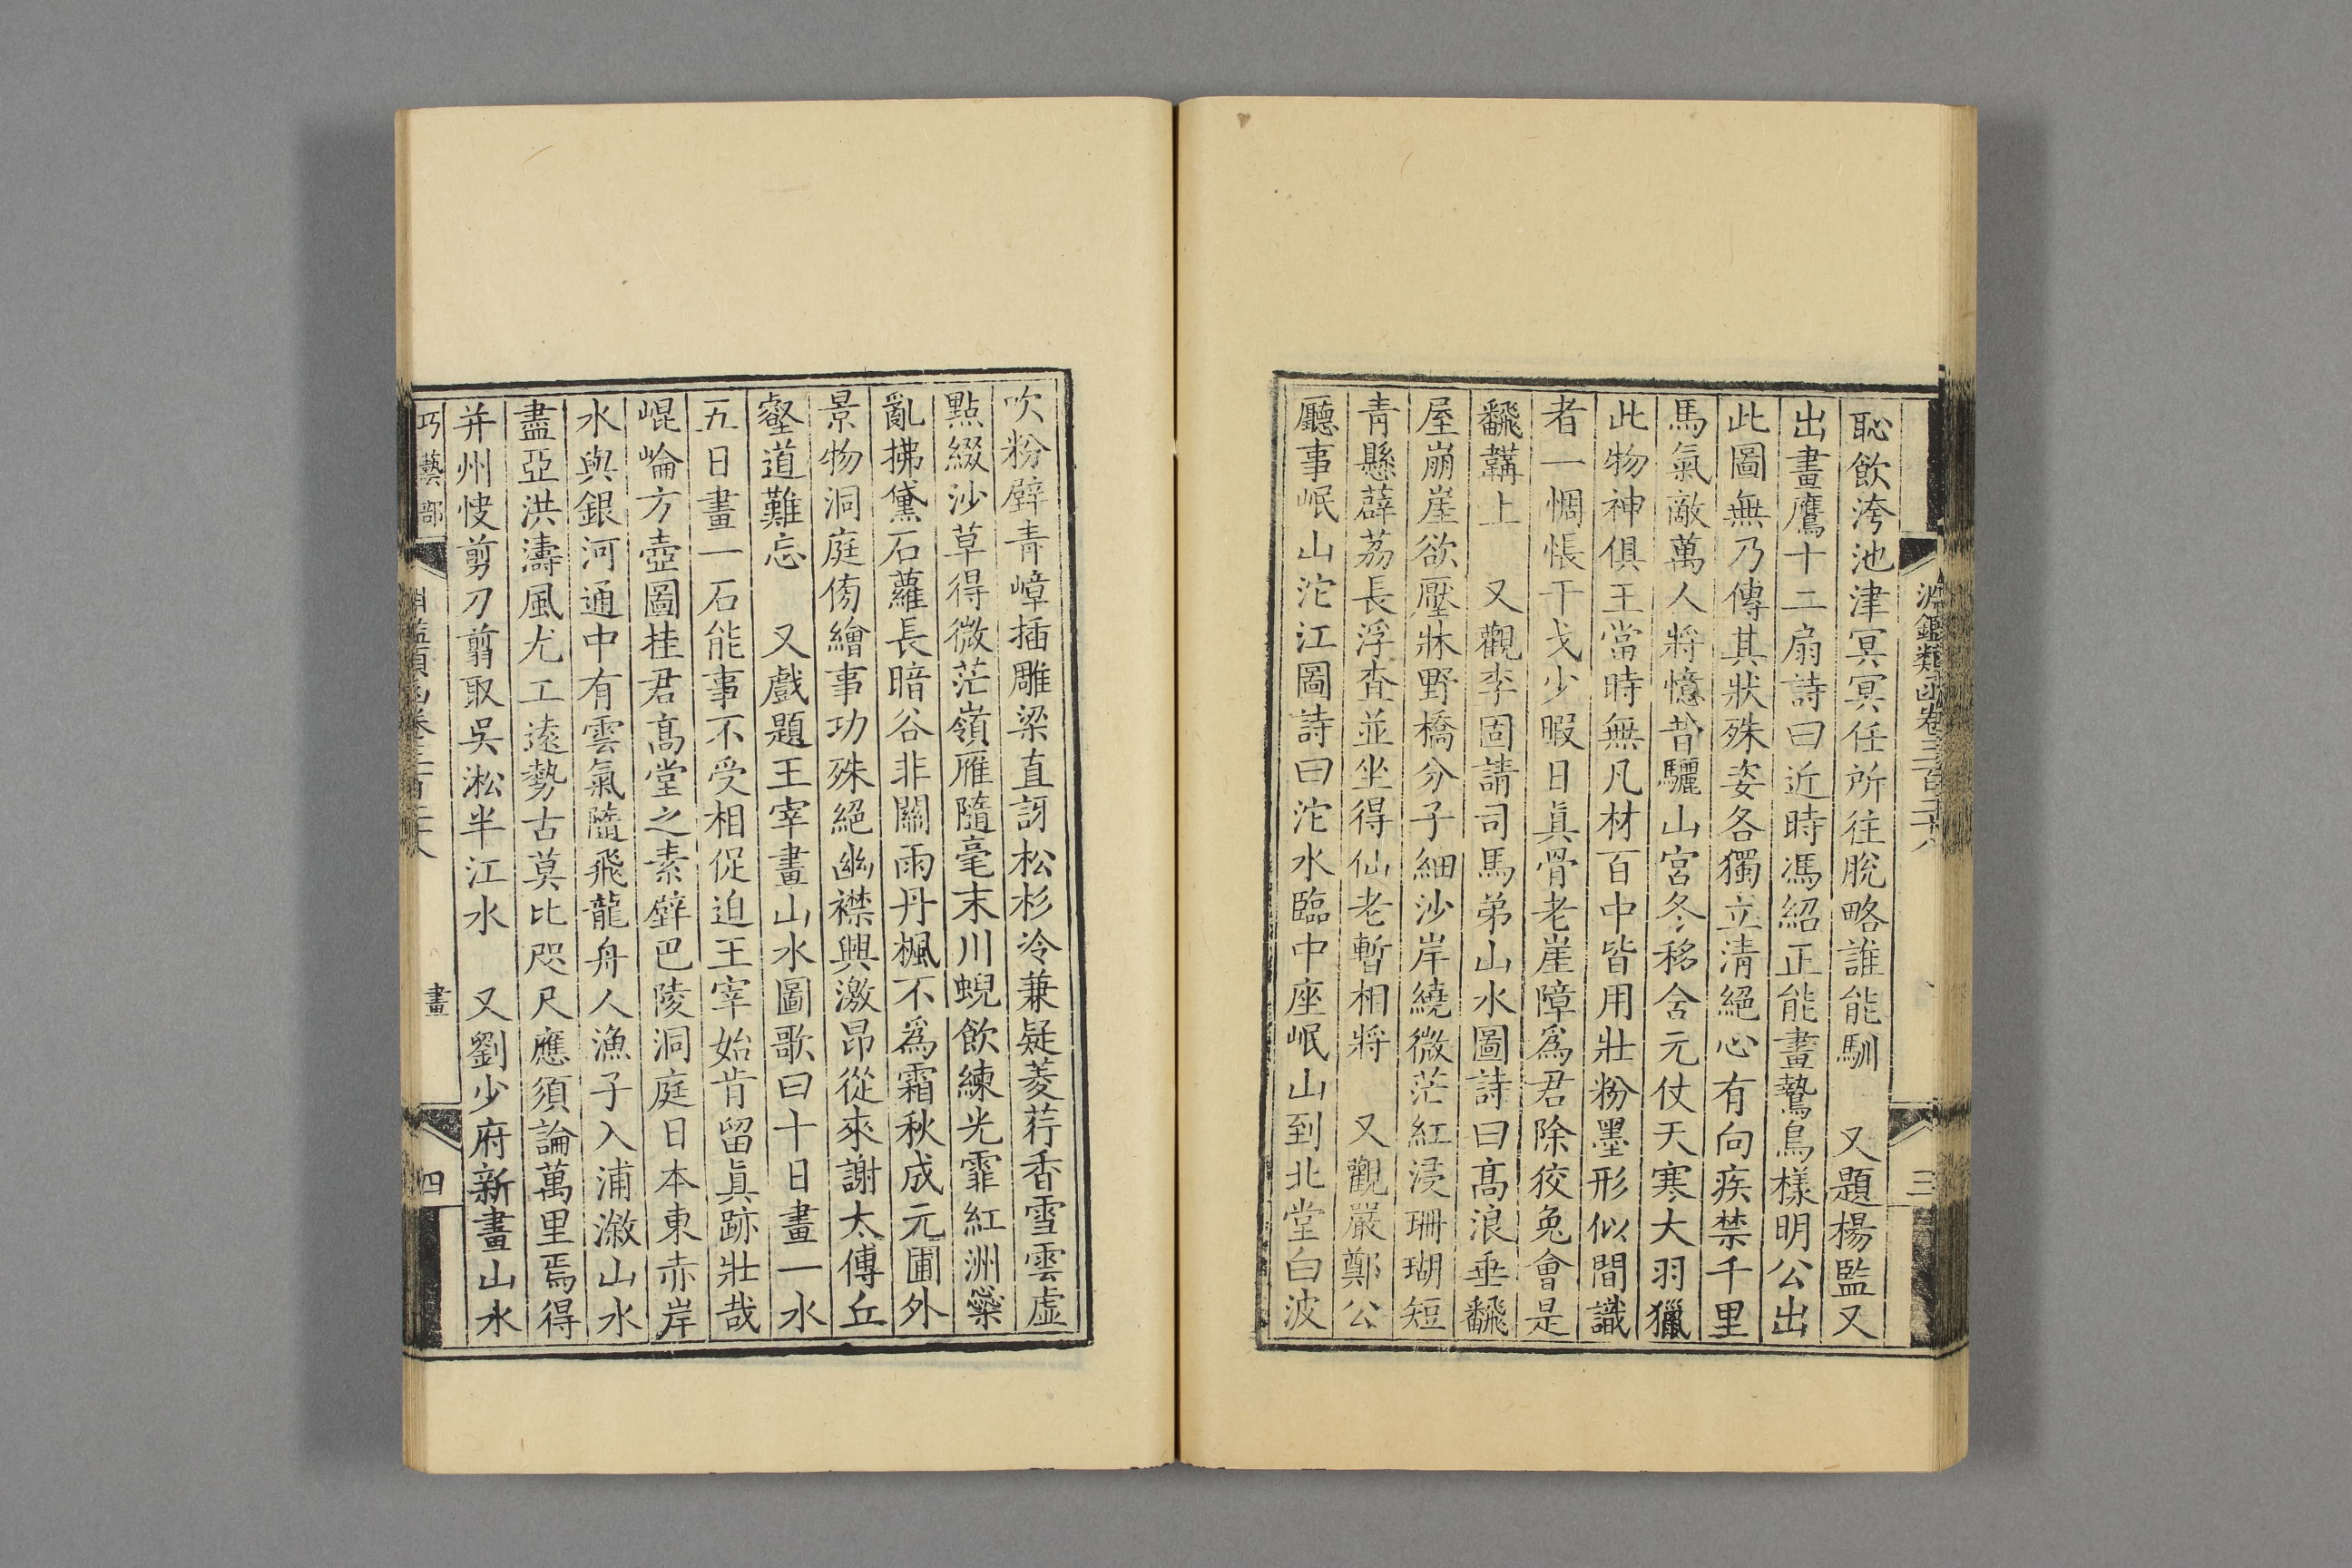 淵鑑類函卷三百二十八
三
恥飲洿池津冥冥任所往脫略誰能馴　又題楊監又
出畫鷹十二扇詩曰近時馮紹正能畫鷙鳥樣明公出
此圖無乃傳其狀殊姿各獨立清絕心有向疾禁千里
馬氣敵萬人將憶昔驪山宮冬移含元仗天寒大羽獵
此物神俱王當時無凡材百中皆用壯粉墨形似間識
者一惆悵干戈少暇日眞骨老崖障爲君除狡兔會是
飜韝上　又觀李固請司馬弟山水圖詩曰高浪垂飜
屋崩崖欲壓牀野橋分子細沙岸繞微茫紅浸珊瑚短
青懸薜荔長浮查並坐得仙老暫相將　又觀嚴鄭公
廳事岷山沱江圖詩曰沱水臨中座岷山到北堂白波
吹粉壁青嶂插雕梁直訝松杉冷兼疑菱荇香雪雲虛
點綴沙草得微茫嶺雁隨毫末川蜺飲練光霏紅洲蘂
亂拂黛石蘿長暗谷非關雨丹楓不爲霜秋成元圃外
景物洞庭傍繪事功殊絕幽襟興激昂從來謝太傅丘
壑道難忘　又戲題王宰畫山水圖歌曰十日畫一水
五日畫一石能事不受相促迫王宰始肯留眞跡壯哉
崐崘方壺圖挂君高堂之素壁巴陵洞庭日本東赤岸
水與銀河通中有雲氣隨飛龍舟人漁子入浦漵山水
盡亞洪濤風尤工遠勢古莫比咫尺應須論萬里焉得
并州快剪刀翦取吳淞半江水　又劉少府新畫山水
巧藝部
畫
四